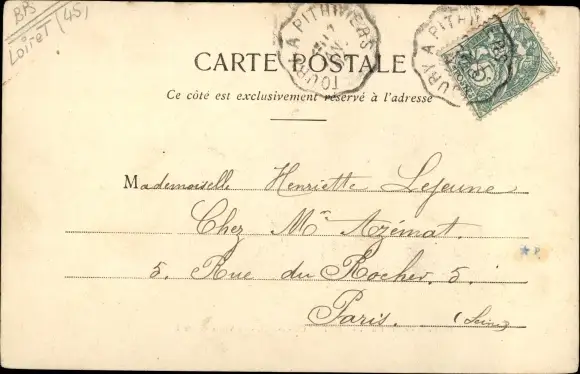 BPS
Loiret (45)
TOURY A PITHIVIERS
TOURY A PITHIVIERS
CARTE POSTALE
Ce côté est exclusivement réservé à l'adresse
Mademoiselle Henriette Lejeune
Chez Mr Azémat.
5. Rue du Rocher. 5.
Paris. (Seine)